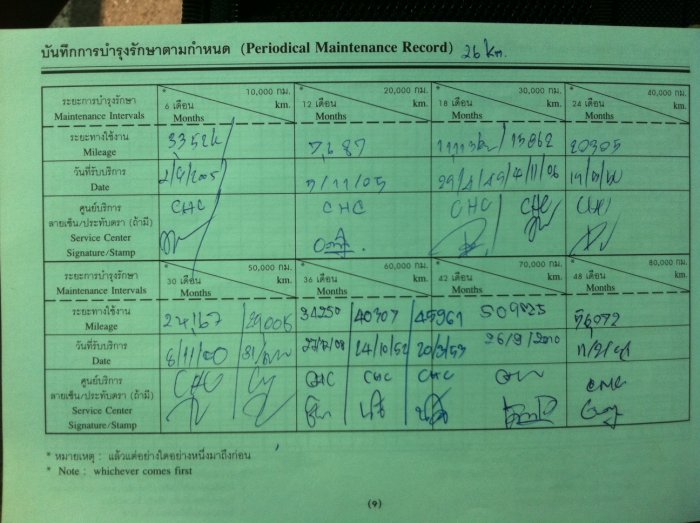 บันทึกการบำรุงรักษาตามกำหนด (Periodical Maintenance Record) 26 km.
ระยะการบำรุงรักษา * 6 เดือน 10,000 กม. * 12 เดือน 20,000 กม. * 18 เดือน 30,000 กม. * 24 เดือน 40,000 กม.
Maintenance Intervals Months km. Months km. Months km. Months km.
ระยะทางใช้งาน
Mileage 7,687 15862 20305
วันที่รับบริการ
Date 7/11/05
ศูนย์บริการ CHC CHC CHC CHC
ลายเซ็น/ประทับตรา (ถ้ามี)
Service Center
Signature/Stamp
ระยะการบำรุงรักษา * 30 เดือน 50,000 กม. * 36 เดือน 60,000 กม. * 42 เดือน 70,000 กม. * 48 เดือน 80,000 กม.
Maintenance Intervals Months km. Months km. Months km. Months km.
ระยะทางใช้งาน
Mileage 29005 34250 40307 45961
วันที่รับบริการ
Date 24/10/52 20/3/53 26/9/2010
ศูนย์บริการ CHC CHC CHC CHC
ลายเซ็น/ประทับตรา (ถ้ามี) CHC
Service Center
Signature/Stamp
* หมายเหตุ : แล้วแต่อย่างใดอย่างหนึ่งมาถึงก่อน
* Note : whichever comes first
(9)